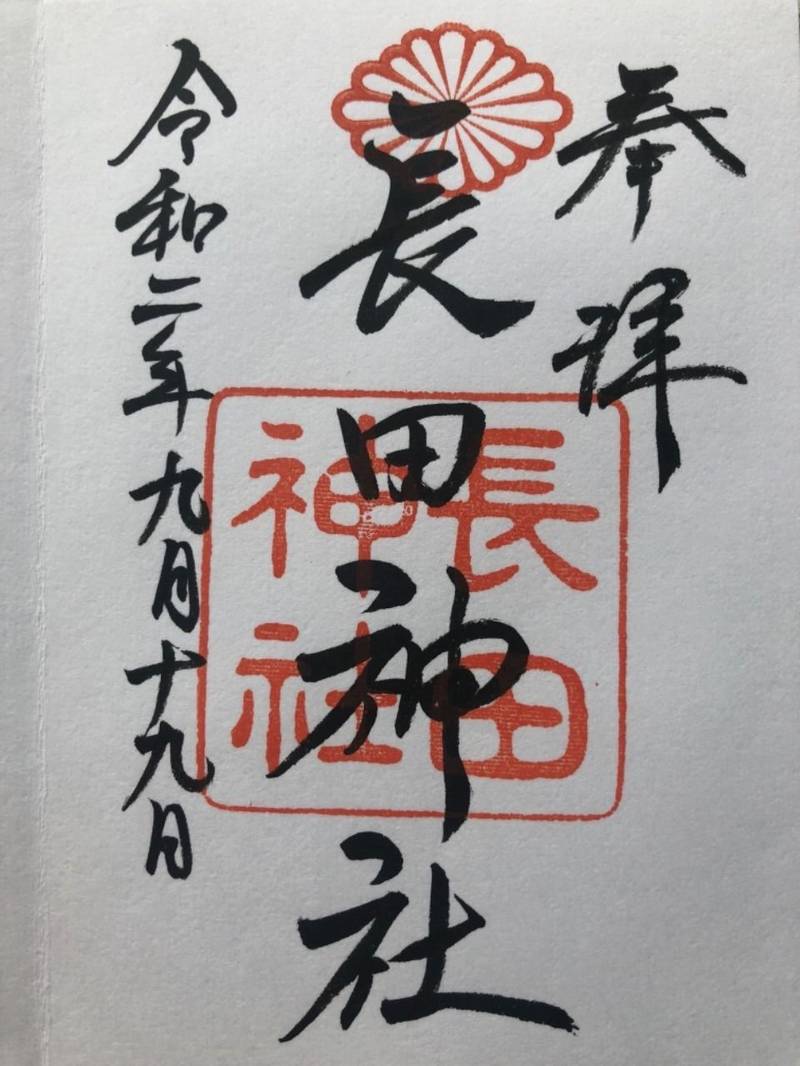 奉拝
長田神社
長田
神社
令和二年九月十九日